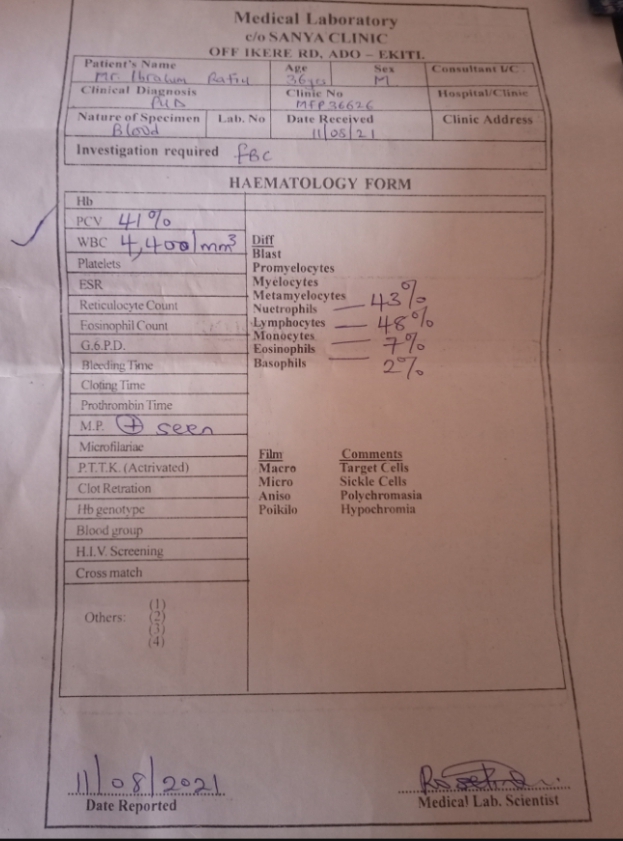 Medical Laboratory
c/o SANYA CLINIC
OFF IKERE RD, ADO – EKITI.
Patient's Name Age Sex Consultant I/C
Mr. Ibrahim 36yrs M
Clinical Diagnosis Clinic No Hospital/Clinic
MFP 36626
Nature of Specimen Lab. No Date Received Clinic Address
Blood 11/08/21
Investigation required FBC
HAEMATOLOGY FORM
Hb
PCV 41%
WBC 4,400/mm³
Platelets
ESR
Reticulocyte Count
Eosinophil Count
G.6.P.D.
Bleeding Time
Cloting Time
Prothrombin Time
M.P. + seen
Microfilariae
P.T.T.K. (Actrivated)
Clot Retration
Hb genotype
Blood group
H.I.V. Screening
Cross match
Others: (1)
(2)
(3)
(4)
Diff
Blast
Promyelocytes
Myelocytes
Metamyelocytes
Nuetrophils — 43%
Lymphocytes — 48%
Monocytes — 7%
Eosinophils — 2%
Basophils
Film Comments
Macro Target Cells
Micro Sickle Cells
Aniso Polychromasia
Poikilo Hypochromia
11/08/2021
Date Reported Medical Lab. Scientist